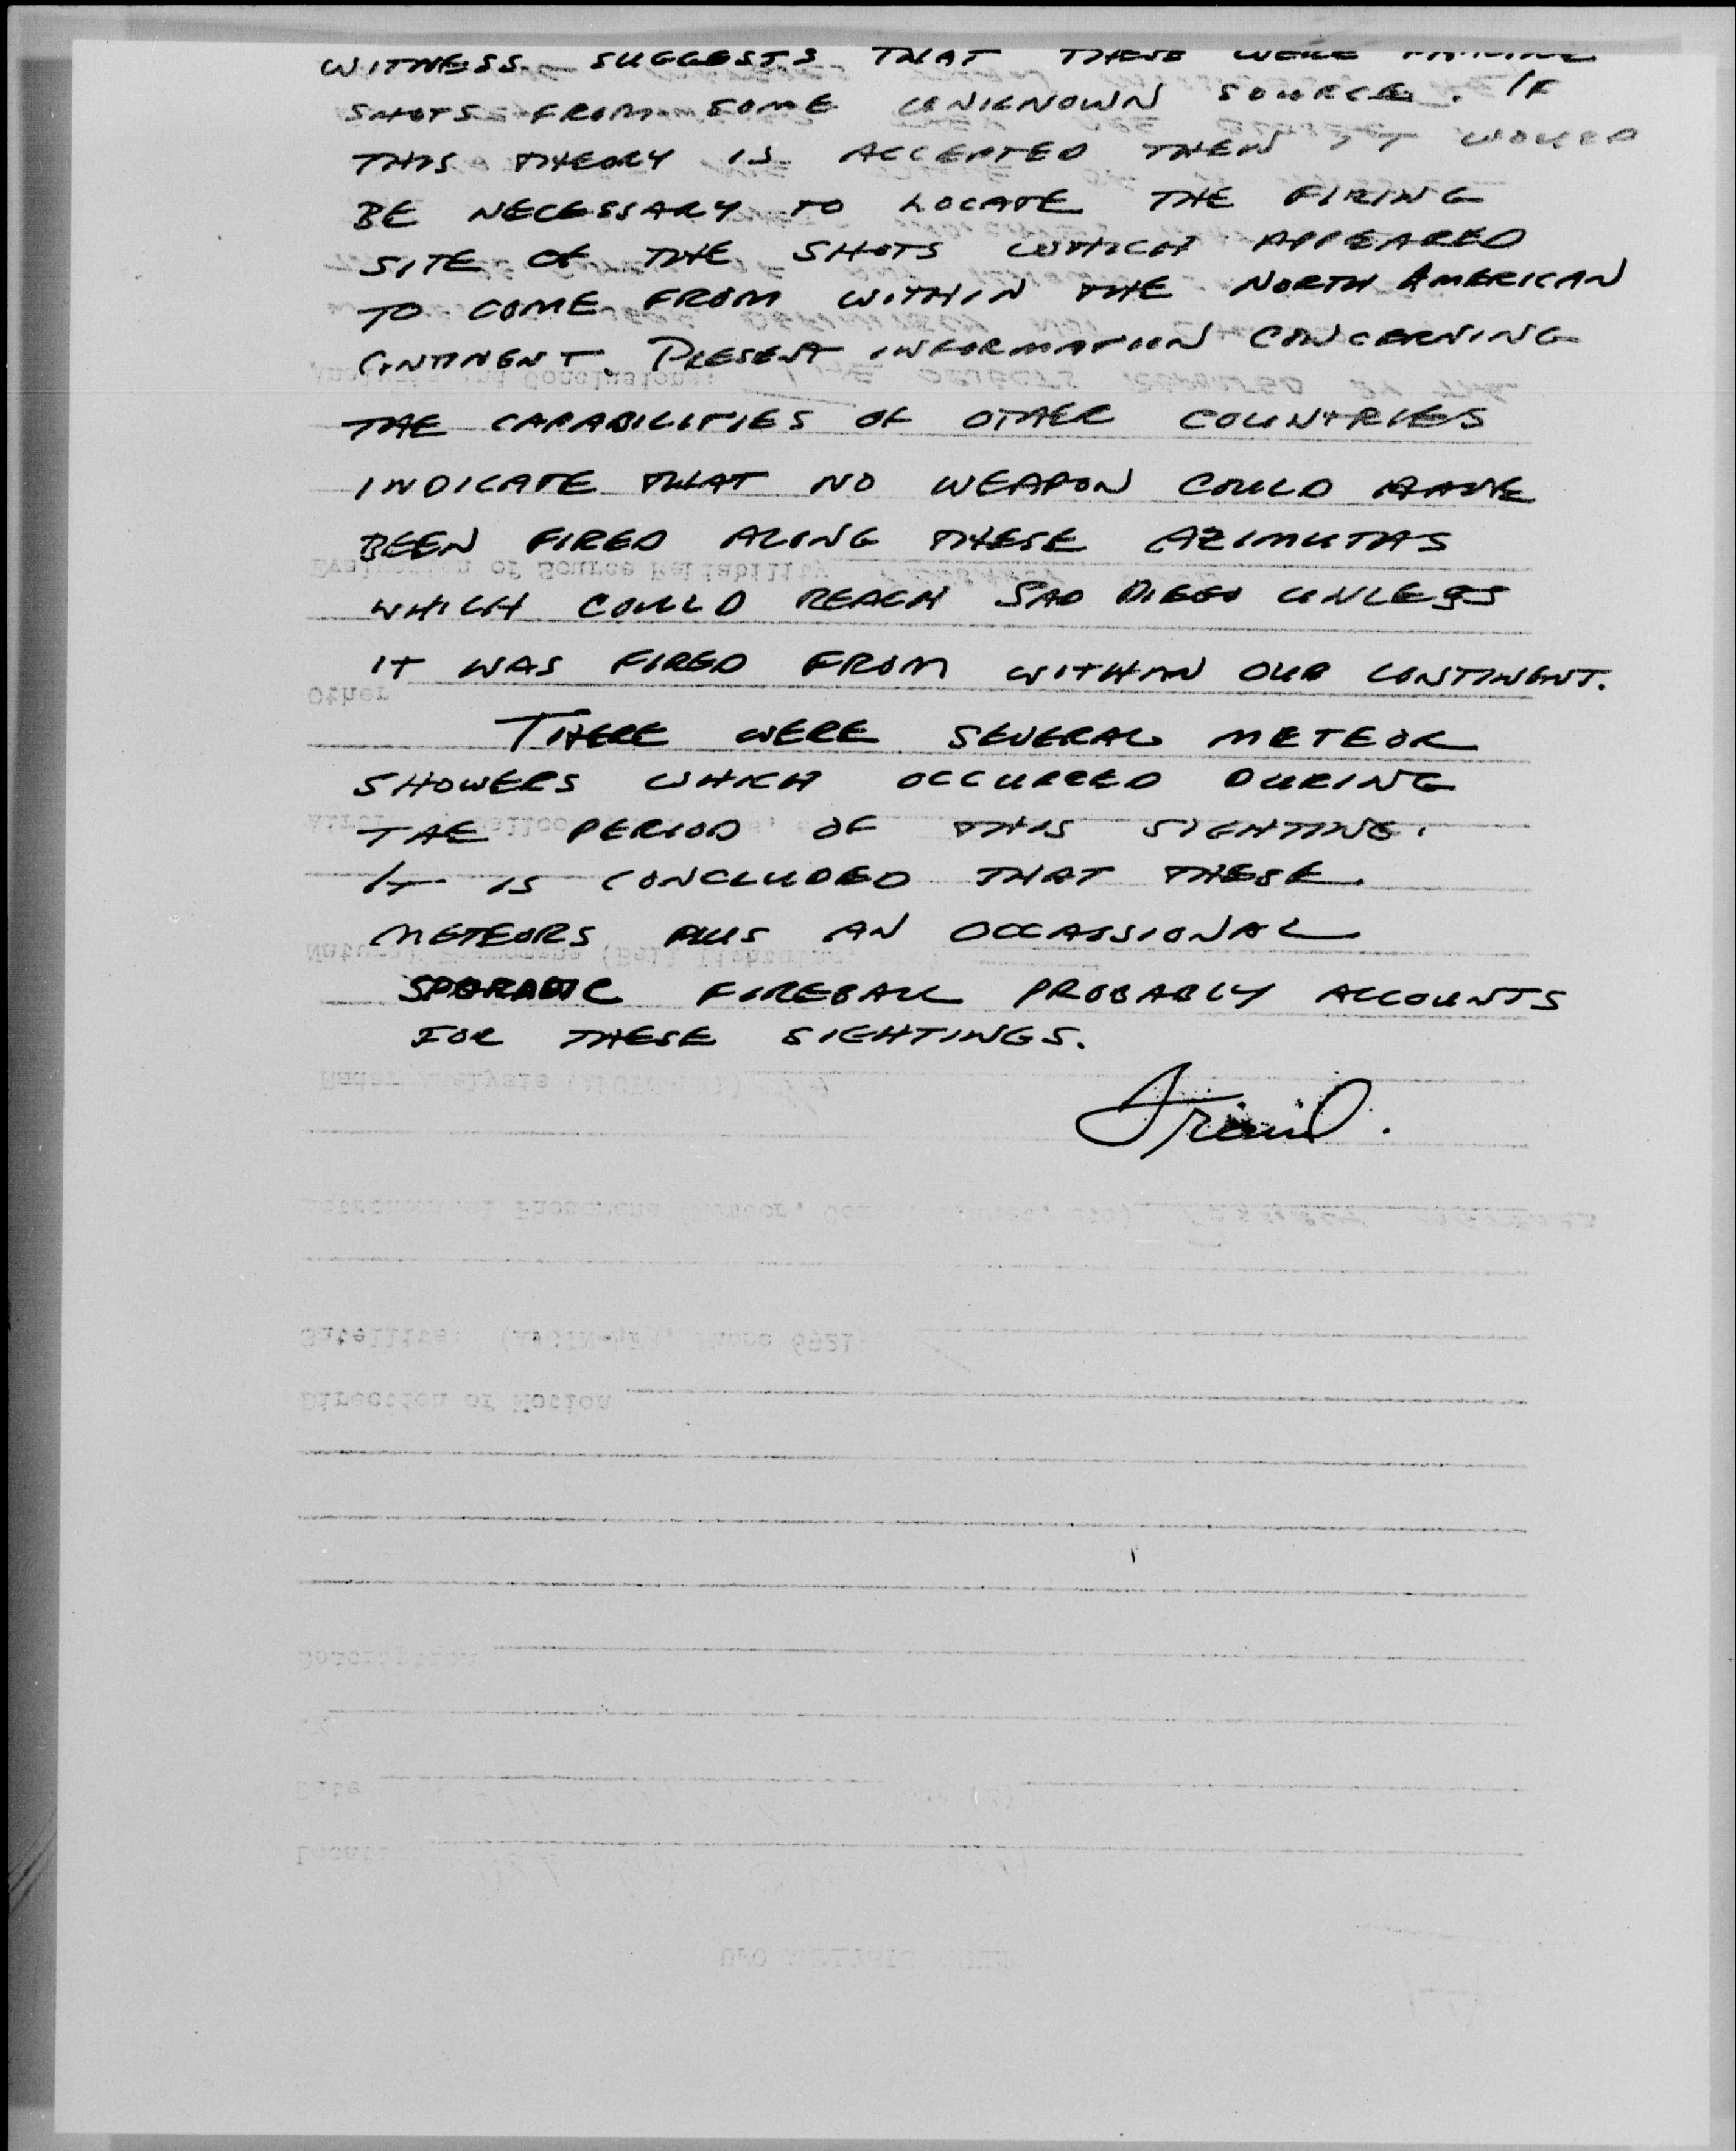 WITNESS SUGGESTS THAT THESE WERE
SHOTS FROM SOME UNKNOWN SOURCE. IF
THIS THEORY IS ACCEPTED THEN IT WOULD
BE NECESSARY TO LOCATE THE FIRING
SITE OF THE SHOTS WHICH APPEARED
TO COME FROM WITHIN THE NORTH AMERICAN
CONTINENT. PRESENT INFORMATION CONCERNING
THE CAPABILITIES OF OTHER COUNTRIES
INDICATE THAT NO WEAPON COULD HAVE
BEEN FIRED ALONG THESE AZIMUTHS
WHICH COULD REACH SAN DIEGO UNLESS
IT WAS FIRED FROM WITHIN OUR CONTINENT.
THERE WERE SEVERAL METEOR
SHOWERS WHICH OCCURRED DURING
THE PERIOD OF THIS SIGHTING.
IT IS CONCLUDED THAT THESE
METEORS PLUS AN OCCASSIONAL
SPORADIC FIREBALL PROBABLY ACCOUNTS
FOR THESE SIGHTINGS.